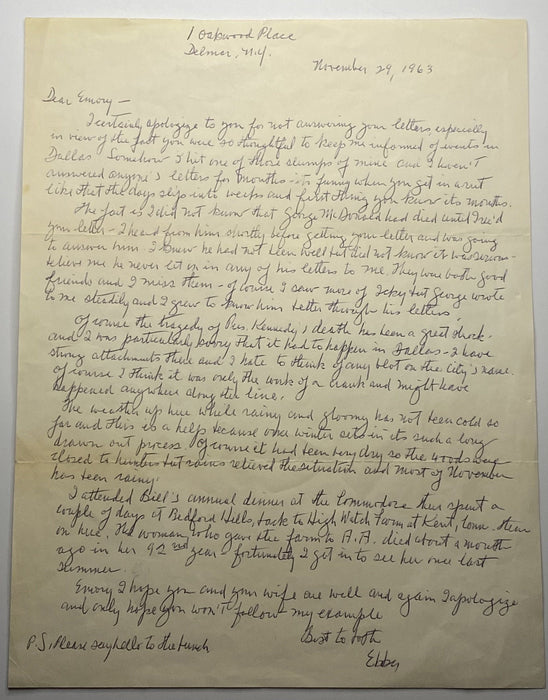 1 Oakwood Place
Delmar, N.Y.
November 29, 1963
Dear Emory —
I certainly apologize to you for not answering your letters, especially
in view of the fact you were so thoughtful to keep me informed of events in
Dallas. Somehow I hit one of those slumps of mine and I haven't
answered anyone's letters for months - it's funny when you get in a rut
like that the days slip into weeks and first thing you know its months.
The fact is I did not know that George McDonald had died until I rec'd
your letter - I heard from him shortly before getting your letter and was going
to answer him. I knew he had not been well but did not know it was serious -
believe me he never let on in any of his letters to me. They were both good
friends and I miss them - of course I saw more of Icky but George wrote
to me steadily and I grew to know him better through his letters.
Of course the tragedy of Pres. Kennedy's death has been a great shock -
and I was particularly sorry that it had to happen in Dallas - I have
strong attachments there and I hate to think of any blot on the City's name.
Of course I think it was only the work of a crank and might have
happened anywhere along the line.
The weather up here while rainy and gloomy has not been cold so
far and this is a help because once winter sets in its such a long
drawn out process. Of course it had been very dry so the woods were
closed to hunters but rains relieved the situation and most of November
has been rainy.
I attended Bill's annual dinner at the Commodore then spent a
couple of days at Bedford Hills, back to High Watch Farm at Kent, Conn. then
on here. The woman who gave the farm to A.A. died about a month
ago in her 92nd year - fortunately I got in to see her once last
summer.
Emory I hope you and your wife are well and again I apologize
and only hope you won't follow my example
Best to both
Ebby
P.S. Please say hello to the bunch